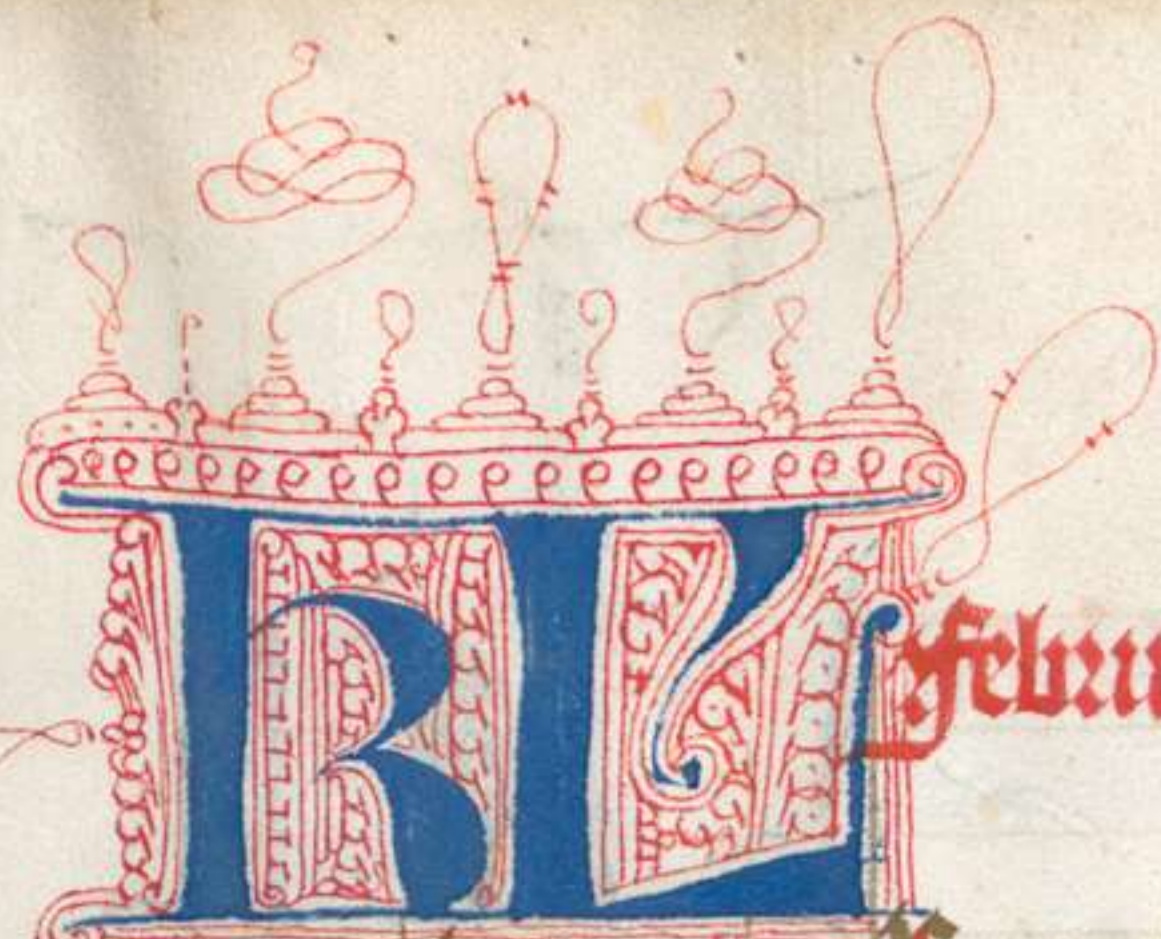 KL februa